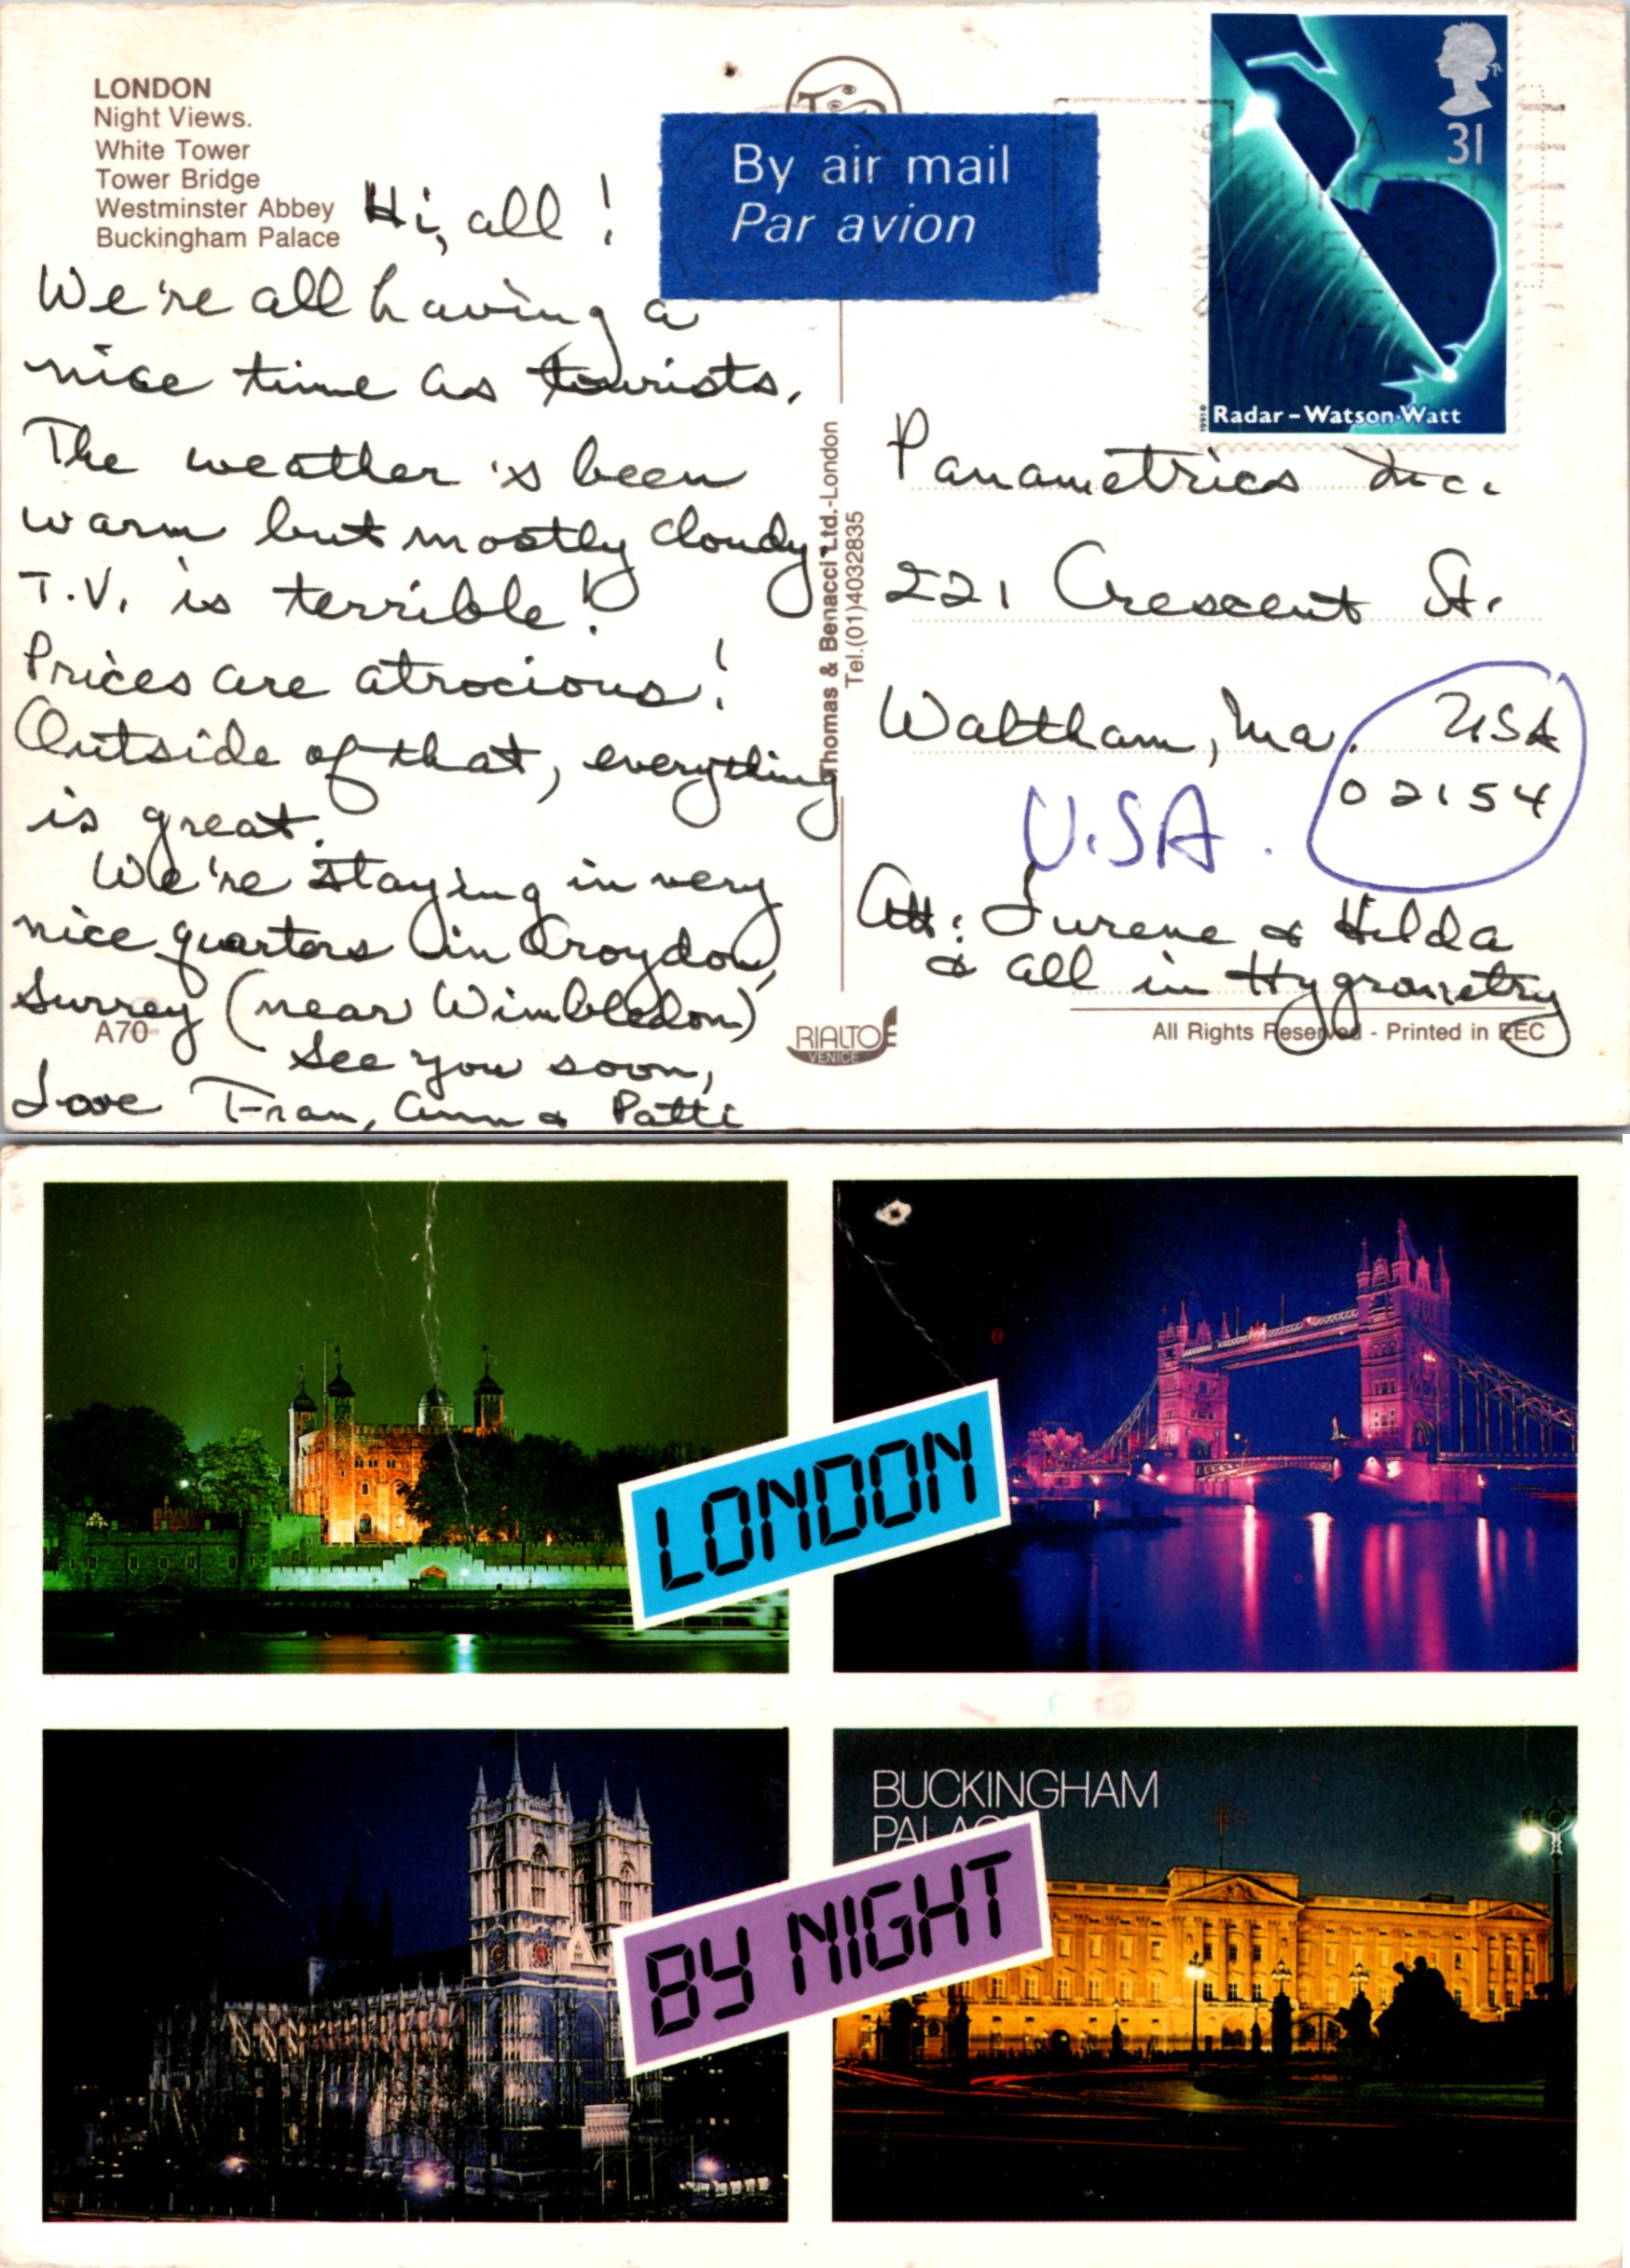 LONDON
Night Views.
White Tower
Tower Bridge
Westminster Abbey
Buckingham Palace
Hi, all!
We're all having a
nice time as tourists.
The weather's been
warm but mostly cloudy
T.V. is terrible!
Prices are atrocious!
Outside of that, everything
is great.
We're staying in very
nice quarters in Croydon,
Surrey (near Wimbledon)
See you soon,
Love Fran, Ann & Patti
A70
By air mail
Par avion
31
A
HUNDRED
YEARS
1991
Radar - Watson-Watt
Thomas & Benacci Ltd.-London
Tel.(01)4032835
Panametrics Inc.
221 Crescent St.
Waltham, Ma. USA
02154
U.SA.
Att: Lurene & Hilda
& all in Hygrometry
RIALTO
VENICE
All Rights Reserved - Printed in EEC
LONDON
BUCKINGHAM
PALACE
BY NIGHT